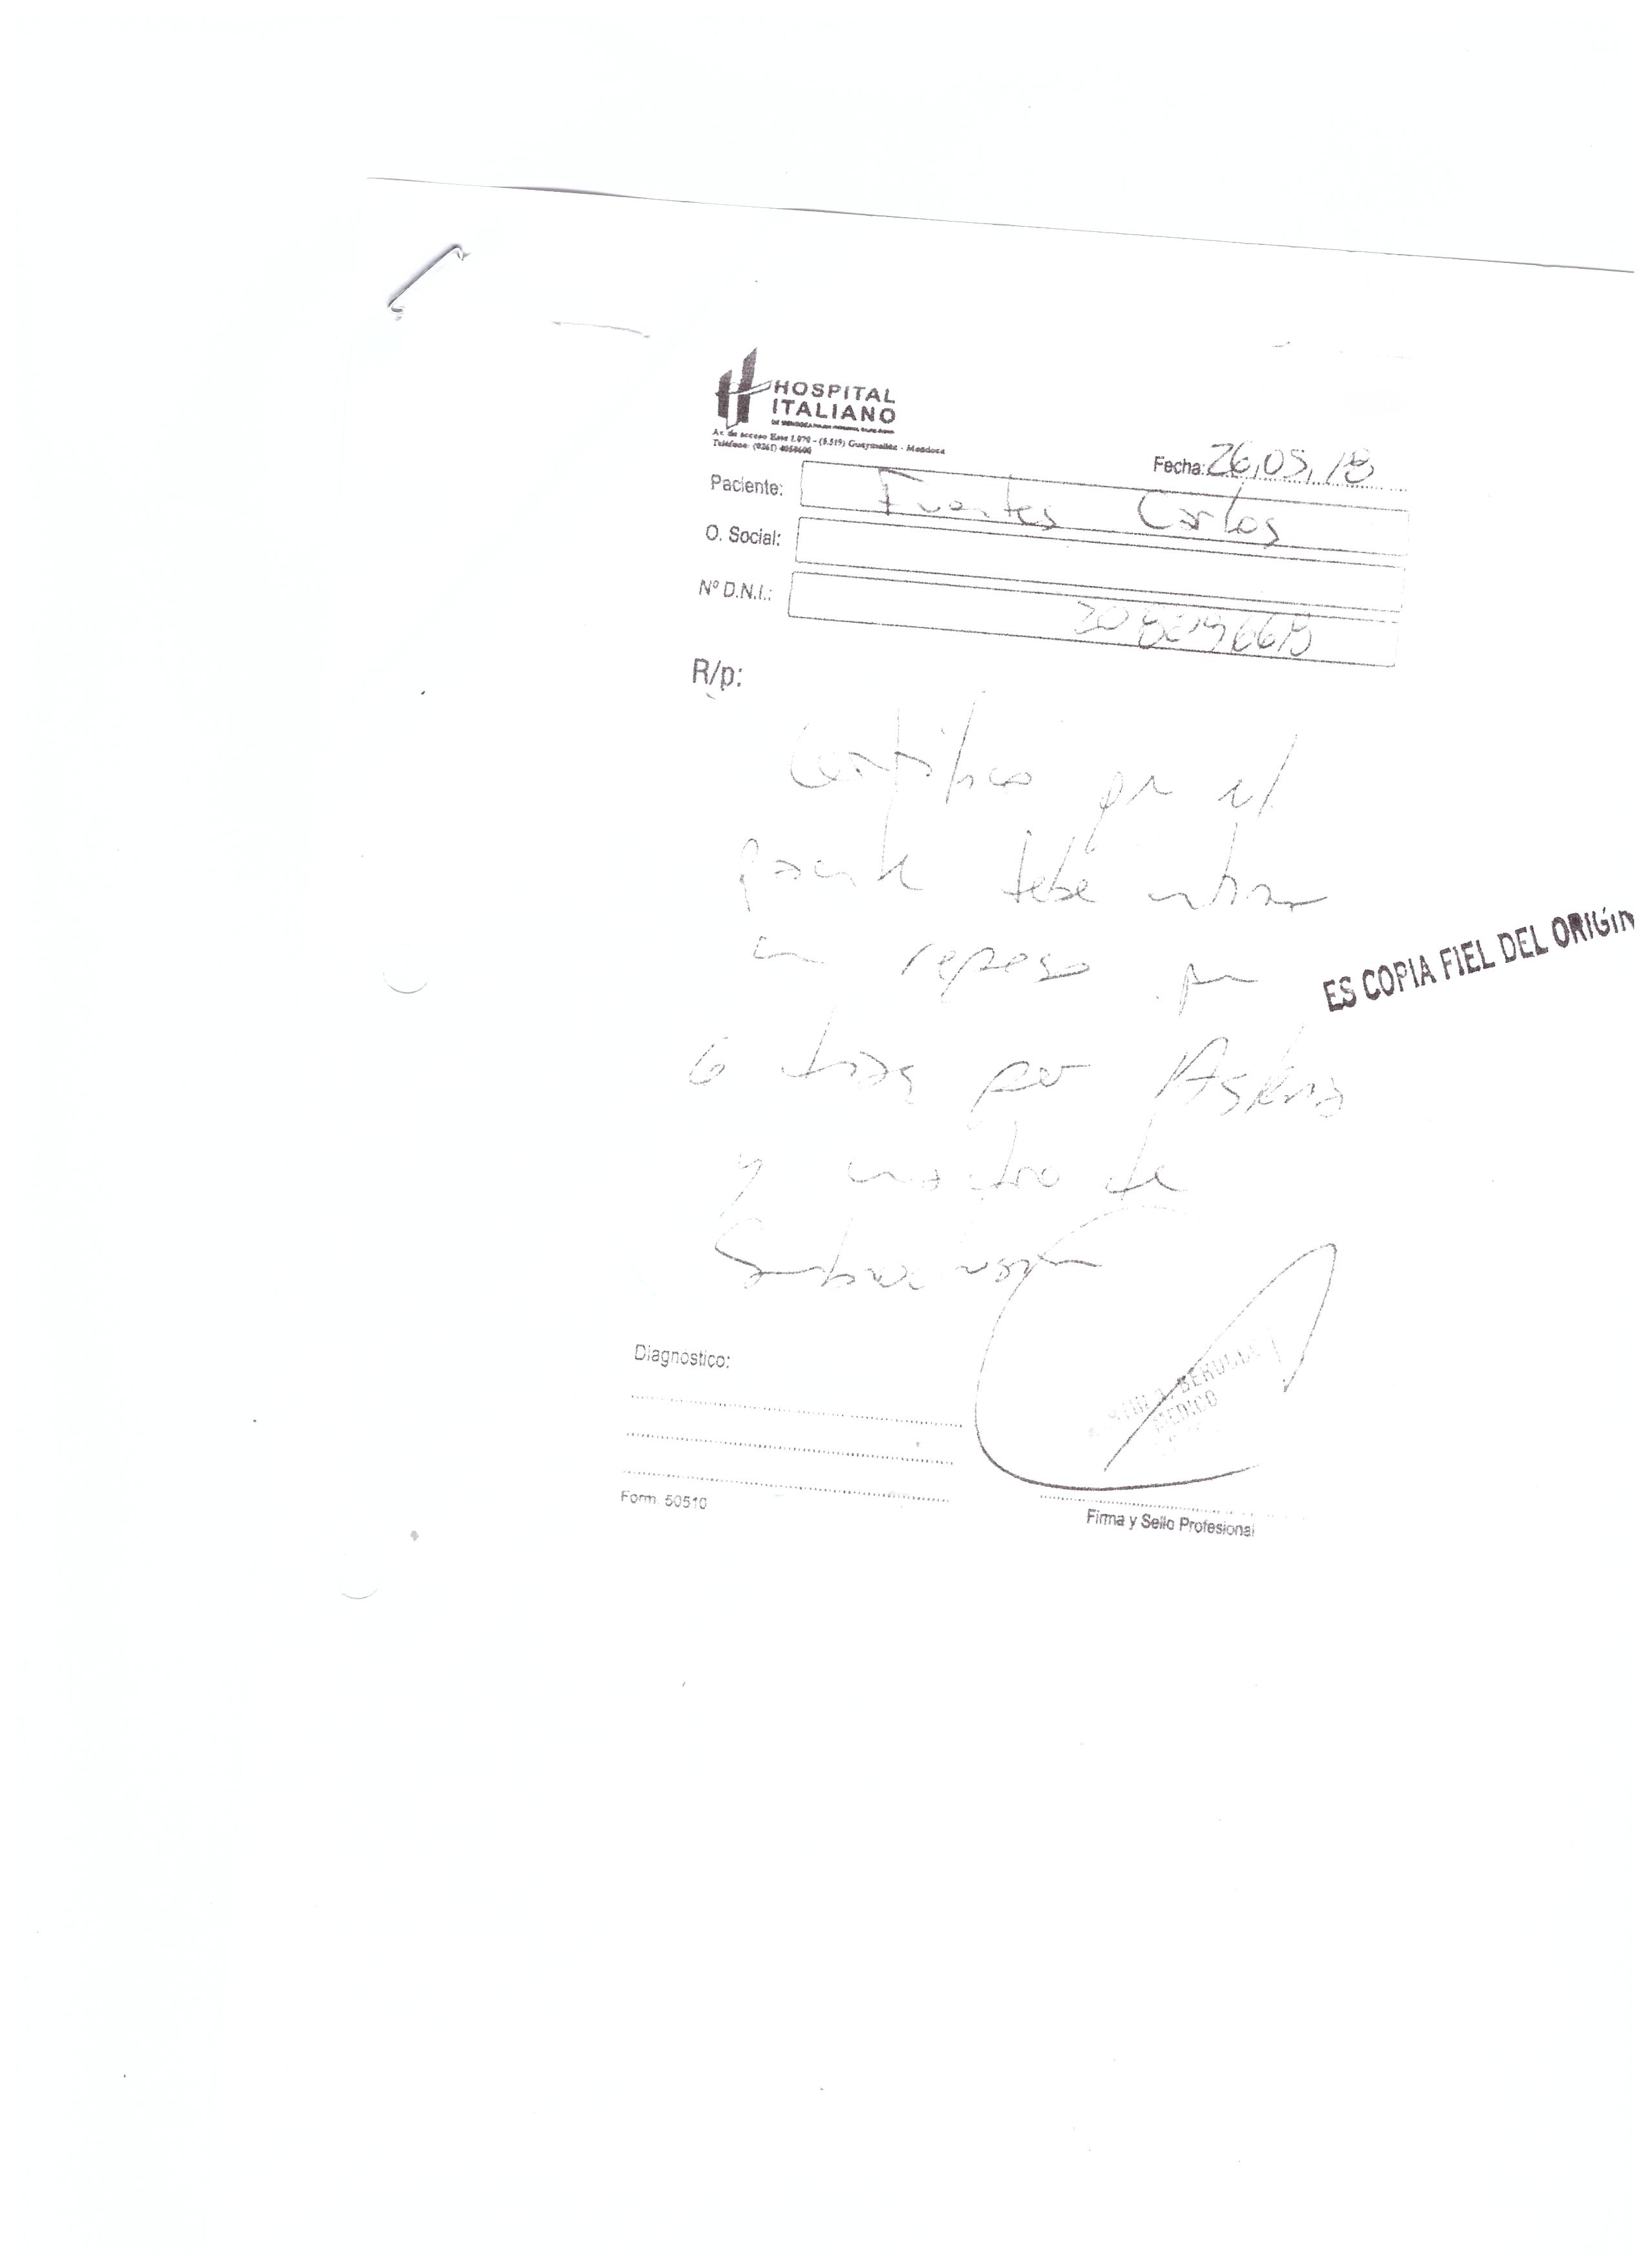 HOSPITAL
ITALIANO
Av. de acceso Este 1.070 - (5.519) Guaymallén - Mendoza
Teléfono: (0261) 4058600
Fecha: 26,05,18
Paciente: Fuentes Carlos
O. Social:
Nº D.N.I.:
R/p:
Certifico que el
paciente debe estar
en reposo por
6 días por Astenia
y cuadro de
ES COPIA FIEL DEL ORIGIN
Diagnostico:
MEDICO
Form. 50510
Firma y Sello Profesional